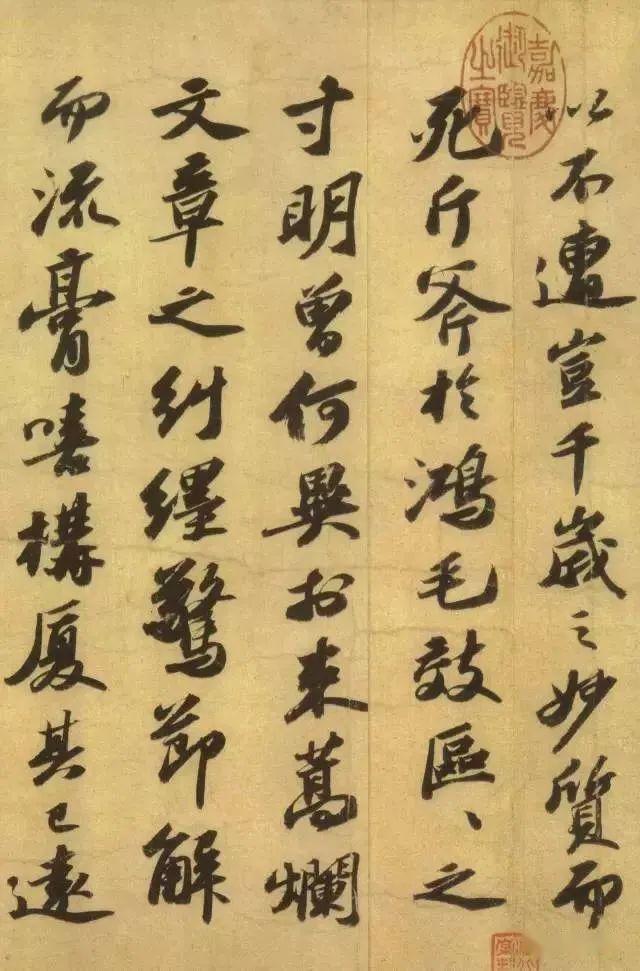 嘉慶御覽之寶
以不遭豈千歲之妙質而
死斤斧於鴻毛效區、之
寸明曾何異於束蒿爛
文章之糾纆驚節解
而流膏嘻構厦其已遠